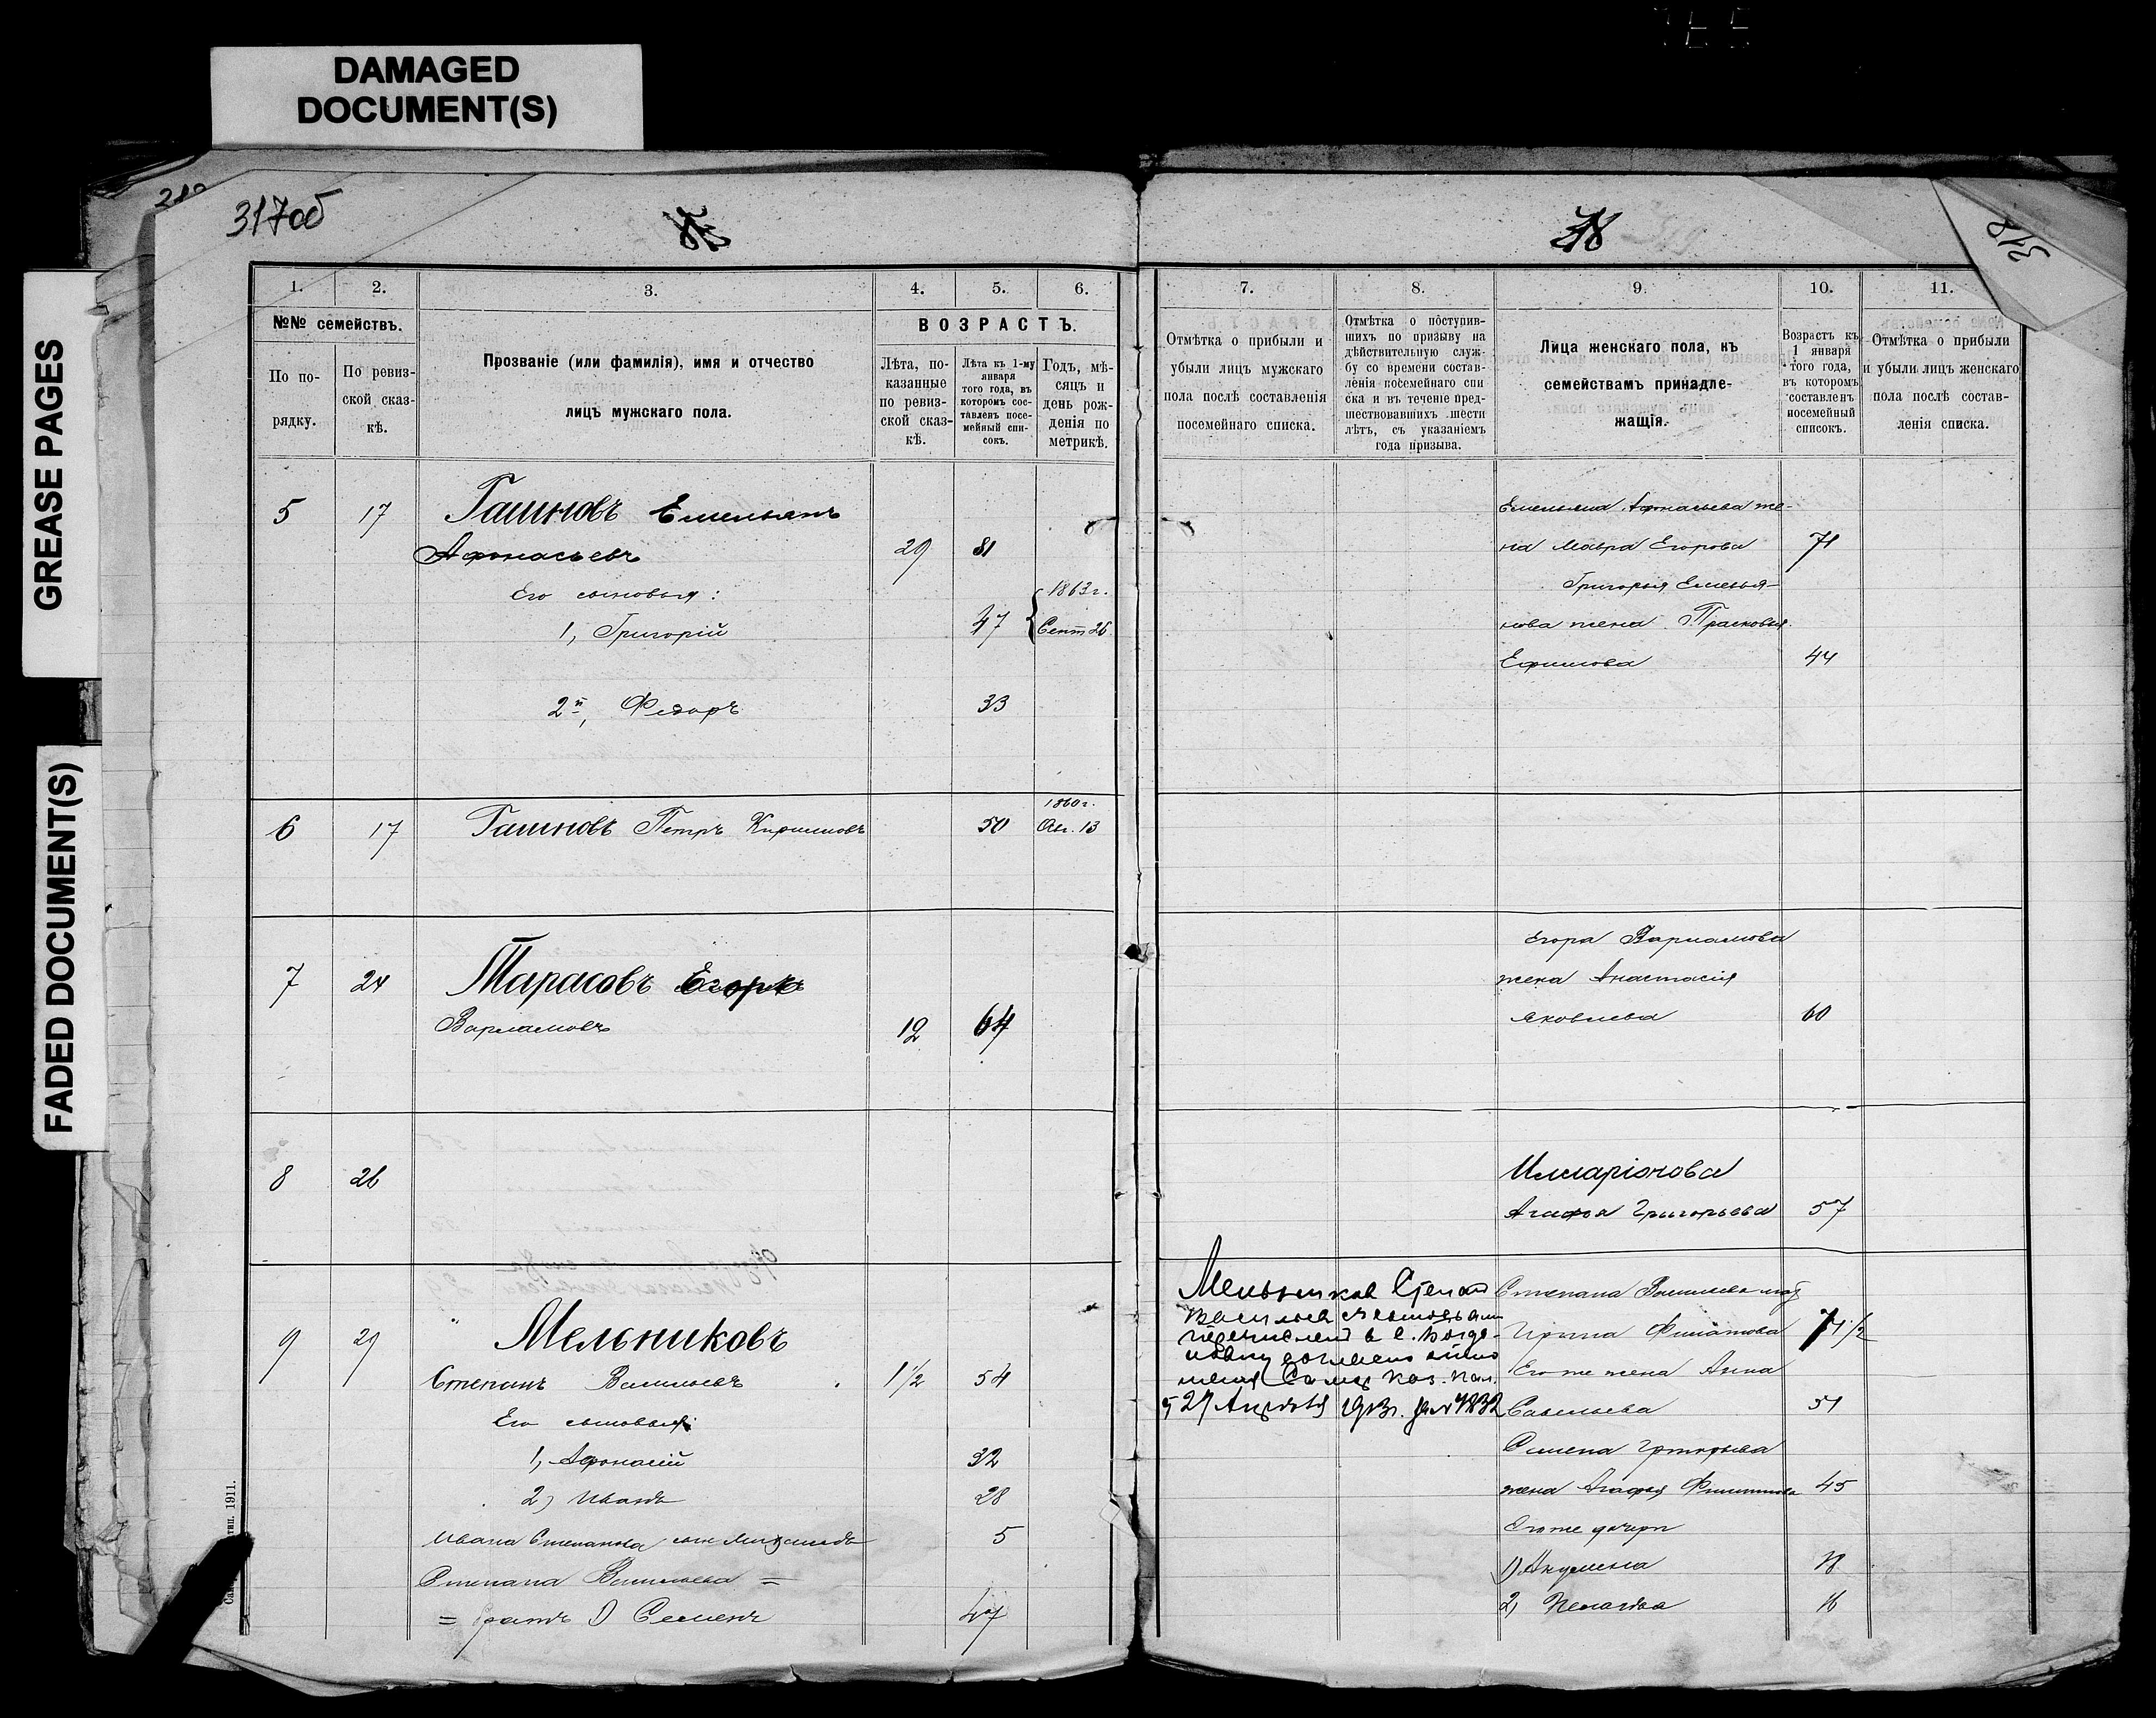 DAMAGED
DOCUMENT(S)
GREASE PAGES
FADED DOCUMENT(S)
317об
318
1.
2.
3.
4.
5.
6.
№№ семействъ.
ВОЗРАСТЪ.
По по-
рядку.
По ревиз-
ской сказ-
кѣ.
Прозваніе (или фамилія), имя и отчество
лицъ мужскаго пола.
Лѣта, по-
казанные
по ревиз-
ской сказ-
кѣ.
Лѣта къ 1-му
января
того года, въ
которомъ сос-
тавленъ посе-
мейный спи-
сокъ.
Годъ, мѣ-
сяцъ и
день рож-
денія по
метрикѣ.
5 17 Гашновъ Емельянъ
Афонасьевъ 29 81
Его сыновья: 1863 г.
1, Григорій 47 Сент 26
2й, Федоръ 33
1860 г.
6 17 Гашновъ Петръ 50 Авг. 13
7 24 Тарасовъ Егоръ
Варламовъ 12 64
8 26
9 29 Мельниковъ
Степанъ Васильевъ 1½ 54
Его сыновья:
1, Афонасій 32
2) Иванъ 28
Ивана Степанова сын 5
Степана Васильева =
= братъ 1) Семенъ 47
1911.
7.
8.
9.
10.
11.
Отмѣтка о прибыли и
убыли лицъ мужскаго
пола послѣ составленія
посемейнаго списка.
Отмѣтка о поступив-
шихъ по призыву на
дѣйствительную служ-
бу со времени состав-
ленія посемейнаго спи
ска и въ теченіе пред-
шествовавшихъ шести
лѣтъ, съ указаніемъ
года призыва.
Лица женскаго пола, къ
семействамъ принадле-
жащія.
Возрастъ къ
1 января
того года,
въ которомъ
составленъ
посемейный
списокъ.
Отмѣтка о прибыли
и убыли лицъ женскаго
пола послѣ состав-
ленія списка.
Емельяна Афонасьева же-
на Мавра Егорова 71
Григорья Емелья-
нова жена Прасковья
Ефимова 44
Егора Варламова
жена Анастасія
Яковлева 60
Илларіонова
Агафья Григорьева 57
Мельников Степан
Васильев с сыновьями
перечислен в с. Богда-
новку согласно
Каз. Пал.
27 1913 г. за № 7832
Степана Васильева мать
Ирина Филатова 71½
Его же жена Анна
Савельева 51
Семена
жена Агафья 45
Его же дочери
1) Акулина 18
2) Пелагея 16